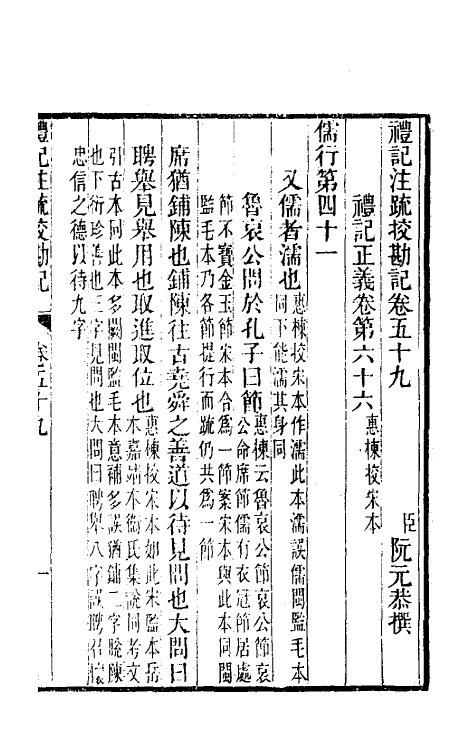 禮記注疏挍勘記卷五十九
臣阮元恭撰
禮記正義卷第六十六惠棟挍宋本
儒行第四十一
又儒者濡也惠棟挍宋本作濡此本濡誤儒閩監毛本同下能濡其身同
魯哀公問於孔子曰節惠棟云魯哀公節哀公節哀公命席節儒有衣冠節居處節不寶金玉節宋本合為一節案宋本與此本同閩監毛本乃各節提行而疏仍共為一節
席猶鋪陳也鋪陳往古堯舜之善道以待見問也大問曰聘舉見舉用也取進取位也惠棟挍宋本如此宋監本岳本嘉靖本衞氏集說同考文引古本同此本多闕閩監毛本意補多誤猶鋪二字脫陳也下衍珍善也三字見問也大問曰聘舉八字誤聘召懷忠信之德以待九字
禮記注疏挍勘記
卷五十九
一